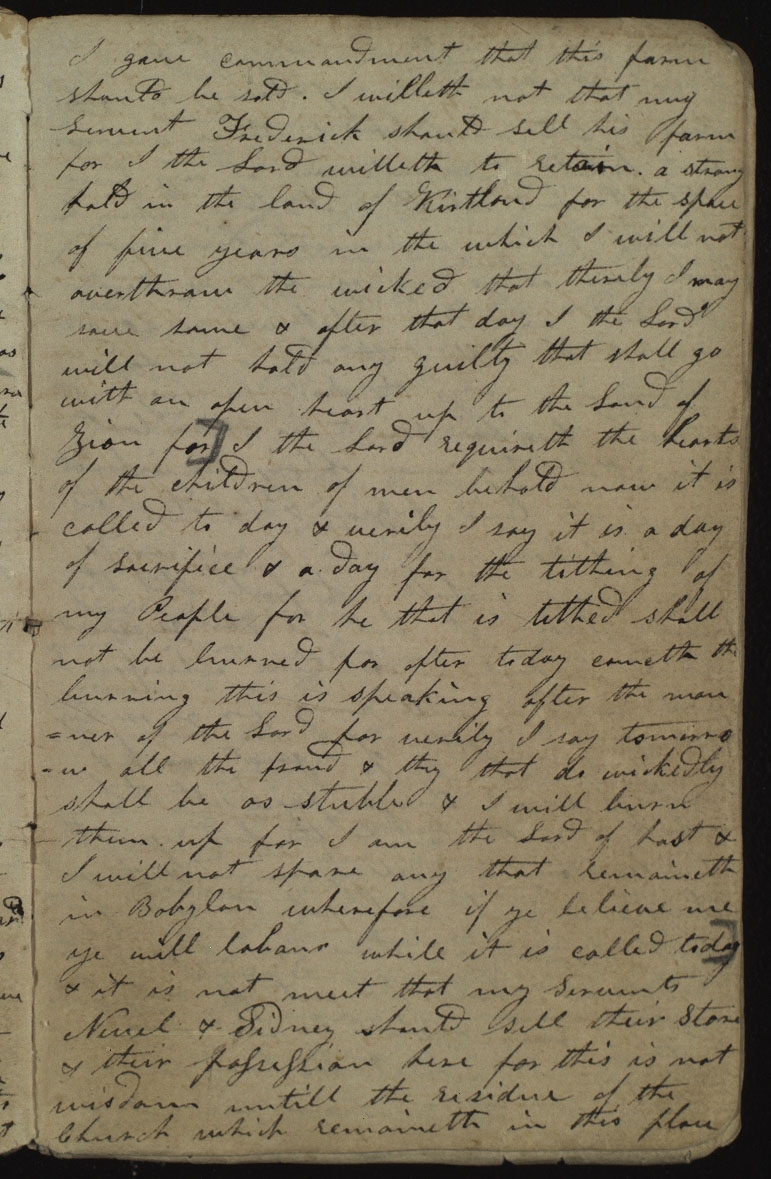 I gave commandment that this farm
should be sold. I willeth not that my
Servent Frederick should sell his farm
for I the Lord willeth to retain. a strong
hold in the land of Kirtland for the space
of five years in the which I will not
overthrow the wicked that thereby I may
save some & after that day I the Lord
will not hold any guilty that shall go
with an open heart up to the Land of
Zion for] I the Lord requireth the hearts
of the children of men behold now it is
called to day & verily I say it is a day
of sacrifice & a day for the tithing of
my People for he that is tithed shall
not be burned for after today cometh the
burning this is speaking after the man
=ner of the Lord for verily I say tomorro
=w all the proud & they that do wickedly
shall be as stuble & I will burn
them up for I am the Lord of host &
I will not spare any that remaineth
in Babylon wherefore if ye believe me
ye will labour while it is called today]
& it is not meet that my Servents
Newel & Sidney should sell their Store
& their possession here for this is not
wisdom untill the residue of the
Church which remaineth in this place